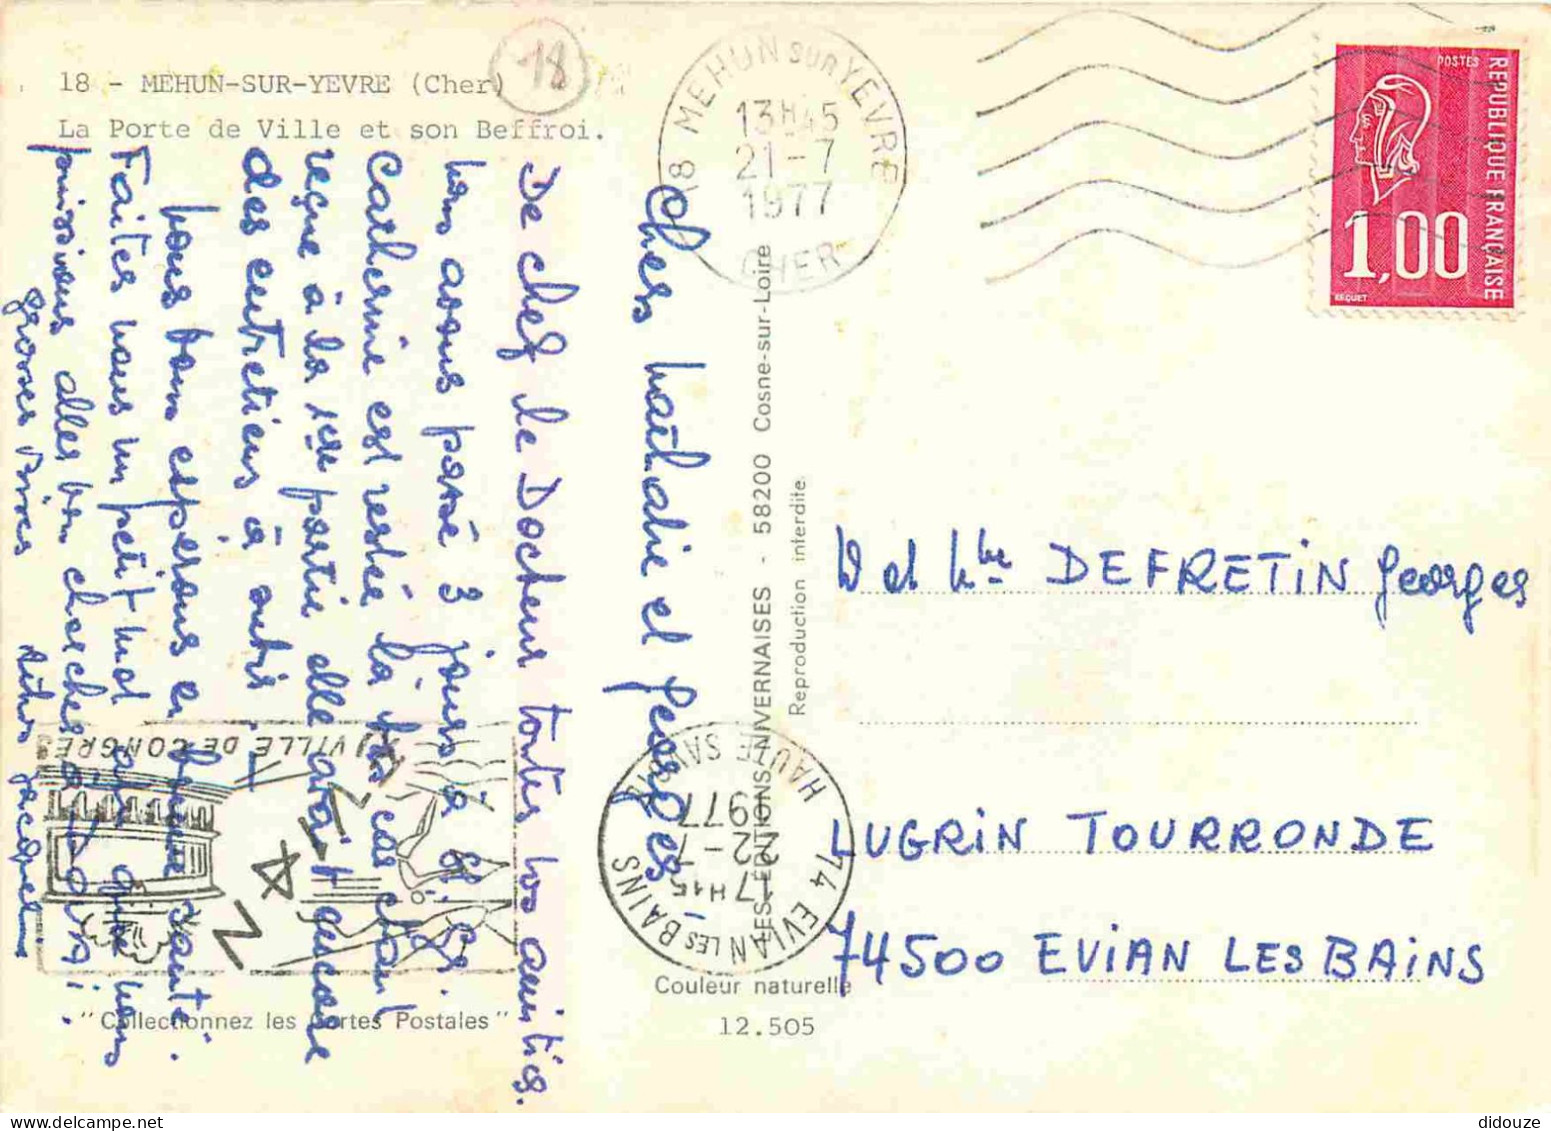 18 - MEHUN-SUR-YEVRE (Cher)
La Porte de Ville et son Beffroi.
18
18 MEHUN SUR YEVRE
13H45
21-7
1977
CHER
POSTES
REPUBLIQUE FRANÇAISE
1,00
BEQUET
Chers Nathalie et Georges
De chez le Docteur toutes nos amitiés.
Nous avons passé 3 jours à
Catherine est restée là
reçue à la 1ère partie elle aurait encore
des entretiens à
Nous vous espérons en bonne santé.
Faites nous un petit mot afin que nous
puissions aller vous chercher à
grosses bises
LES EDITIONS NIVERNAISES - 58200 Cosne-sur-Loire
Reproduction interdite.
EVIAN
VILLE DE CONGRES
74 EVIAN LES BAINS
17H15
22-7
1977
HAUTE SAVOIE
M et Mme DEFRETIN Georges
LUGRIN TOURRONDE
74500 EVIAN LES BAINS
"Collectionnez les Cartes Postales"
Couleur naturelle
12.505
didouze